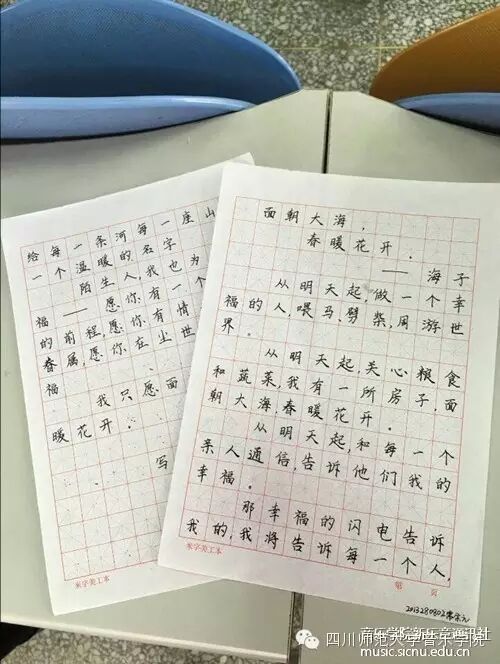 面朝大海,
春暖花开.
—— 海子
从明天起,做一个幸
福的人,喂马,劈柴,周游世
界.
从明天起,关心粮食
和蔬菜,我有一所房子,面
朝大海,春暖花开.
从明天起,和每一个
亲人通信,告诉他们我的
幸福.
那幸福的闪电告诉
我的,我将告诉每一个人,
米字美工本 第 页
2013280802
给每一条河每一座山
一个温暖的名字
陌生人,我也为
福——愿你有一个
的前程,愿你有情
眷属,愿你在尘世
福
我只愿面
暖花开.
写
米字美工本
四川师范大学音乐学院
music.sicnu.edu.cn